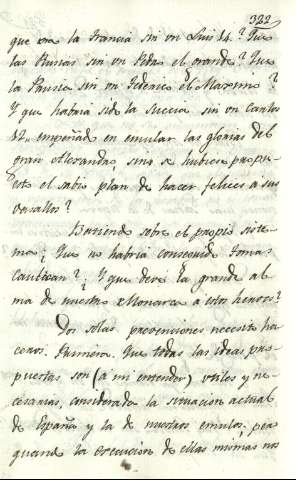 322
que era la Francia sin un Luis 14.? Que
las Rusias sin un Pedro el grande? Que
la Prusia sin un Federico el Maximo?
Y que habria sido la Suecia sin un Carlos
12. empeñado en emular las glorias del
gran Alexandro, sino se hubiese propu-
esto el sabio plan de hacer felices à sus
vasallos?
sobre el propio siste-
ma; Que no habria conseguido Tomas
Caulican? Y que dexa la grande al-
ma de nuestro Monarca à estos heroes?
Dos solas prevenciones necesito ha-
ceros. Primera. Que todas las ideas pro-
puestas son (a mi entender) utiles y ne-
cesarias, considerada la situacion actual
de España y la de nuestros emulos; pero
quando la execucion de ellas mismas nos